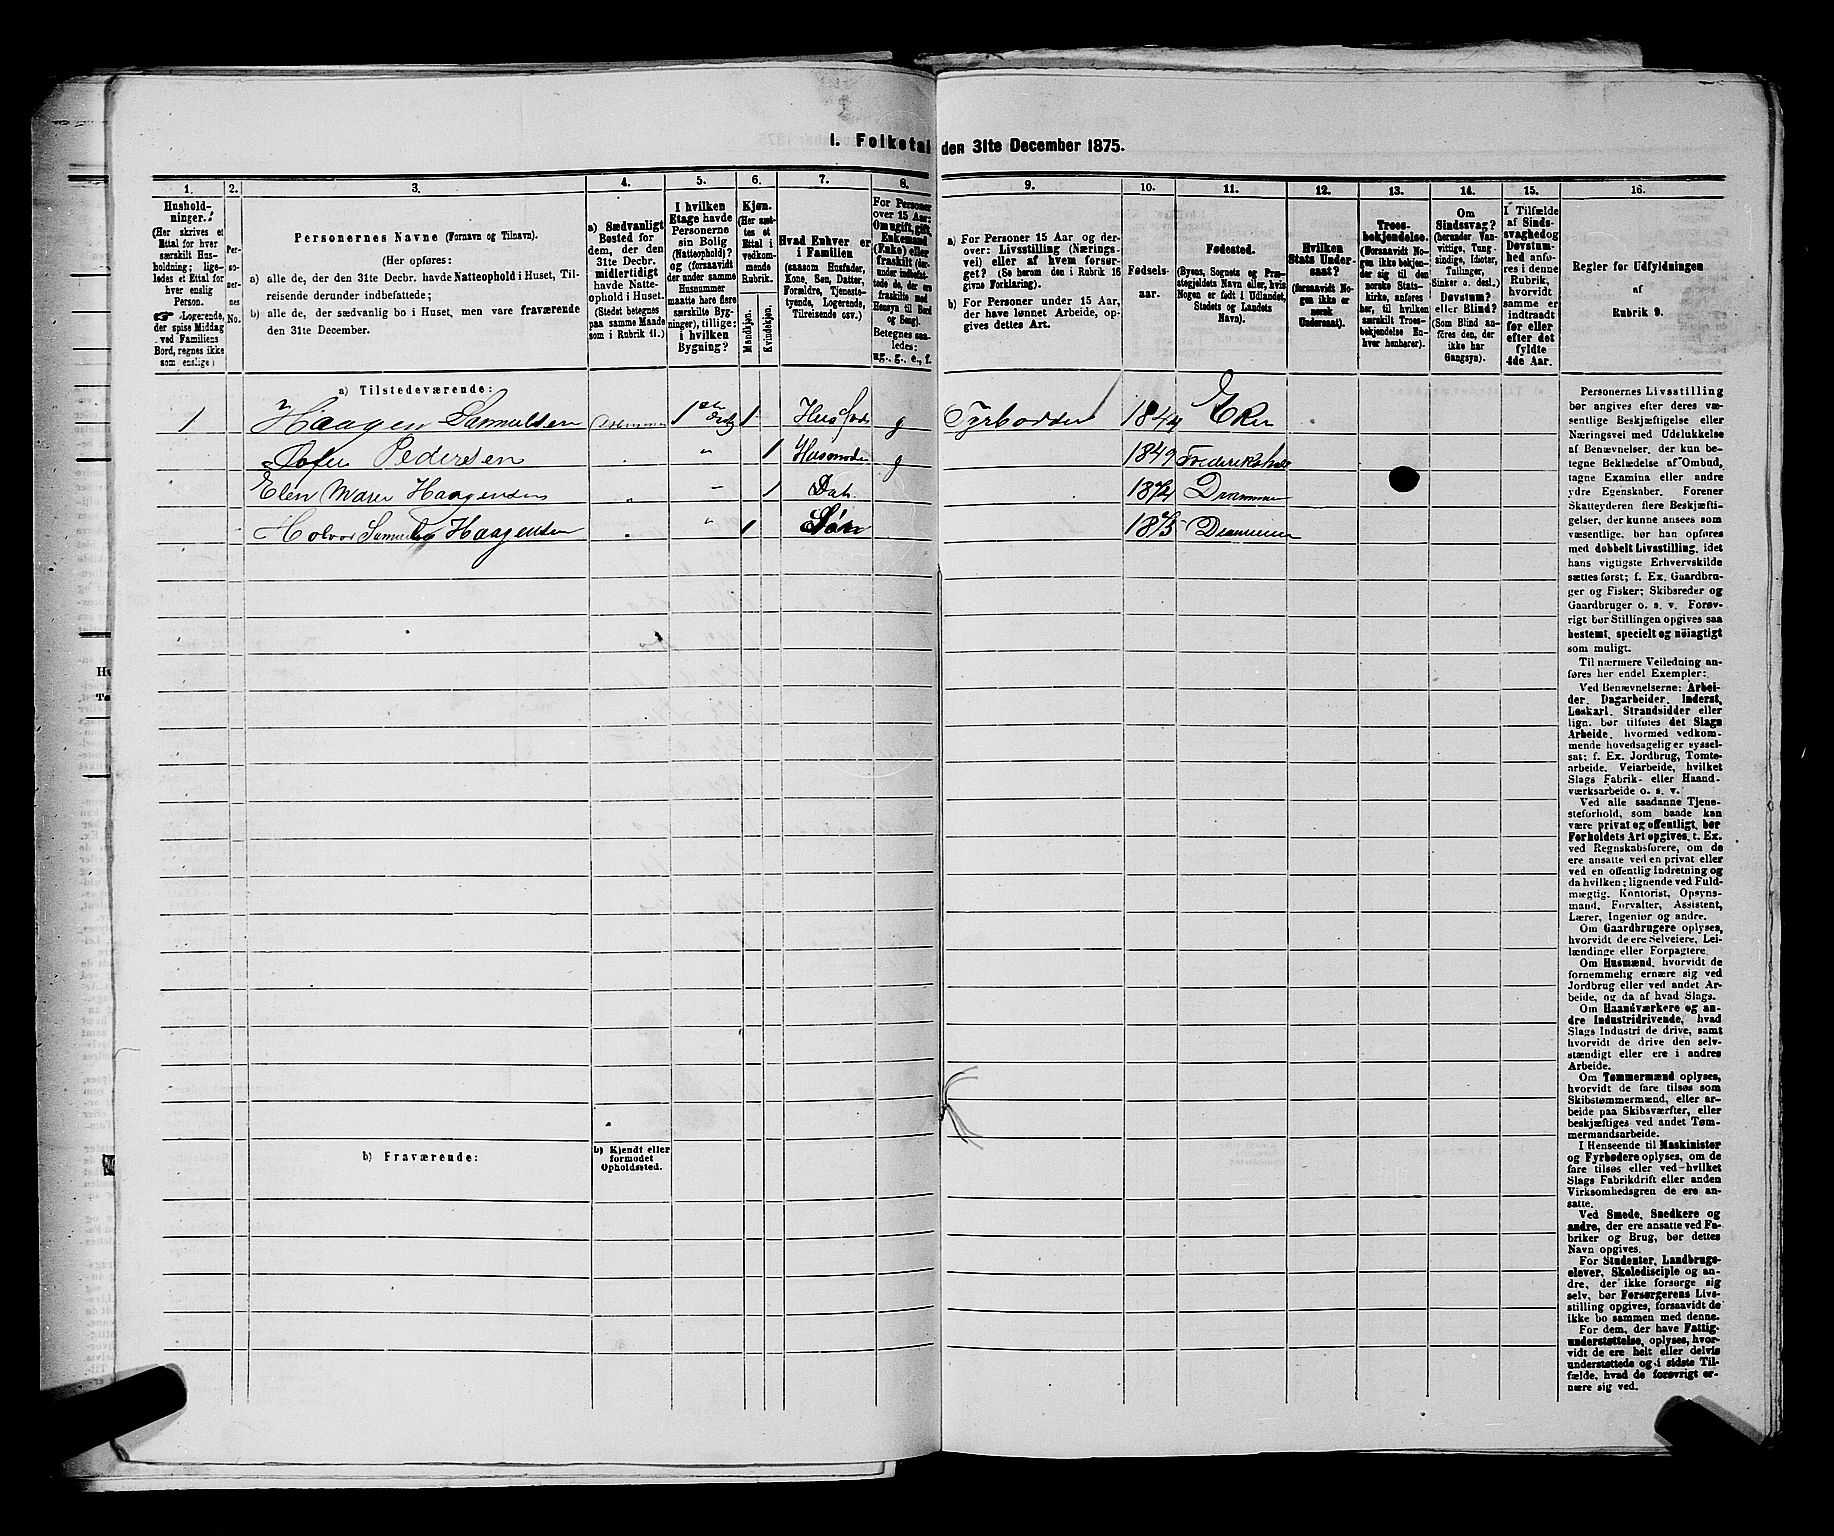 I. Folketal den 31te December 1875.
1. 2. 3. 4. 5. 6. 7. 8. 9. 10. 11. 12. 13. 14. 15. 16.
Hushold-
ninger.
(Her skrives et
Ettal for hver
særskilt Hus-
holdning; lige-
ledes et Ettal for
hver enslig
Person.
Logerende,
der spise Middag
ved Familiens
Bord, regnes ikke
som enslige)
Per-
so-
ner-
nes
No.
Personernes Navne (Fornavn og Tilnavn).
(Her opføres:
a) alle de, der den 31te Decbr. havde Natteophold i Huset, Til-
reisende derunder indbefattede;
b) alle de, der sædvanlig bo i Huset, men vare fraværende
den 31te December.
a) Sædvanligt
Bosted for
dem, der den
31te Decbr.
midlertidigt
havde Natte-
ophold i Huset.
(Stedet betegnes
paa samme Maade
som i Rubrik 11.)
I hvilken
Etage havde
Personerne
sin Bolig
(Natteophold)?
og (forsaavidt
der under samme
Husnummer
maatte høre flere
særskilte Byg-
ninger), tillige:
i hvilken
Bygning?
Kjøn.
(Her sæt-
tes et
Ettal i
vedkom-
mende
Rubrik.
Mandkjøn.
Kvindekjøn.
Hvad Enhver er
i Familien
(saasom Husfader,
Kone, Søn, Datter,
Forældre, Tjeneste-
tyende, Logerende,
Tilreisende osv.)
For Personer
over 15 Aar:
Om ugift, gift,
Enkemand
(Enke) eller
fraskilt (der-
under indbefat-
tede de, der ere
fraskilte med
Hensyn til Bord
og Seng).
Betegnes saa-
ledes:
ug., g., e., f.
a) For Personer 15 Aar og der-
over: Livsstilling (Nærings-
vei) eller af hvem forsør-
get? (Se herom den i Rubrik 16
givne Forklaring).
b) For Personer under 15 Aar,
der have lønnet Arbeide, op-
gives dettes Art.
Fødsels-
aar.
Fødested.
(Byens, Sognets og Præ-
stegjeldets Navn eller, hvis
Nogen er født i Udlandet,
Stedets og Landets
Navn).
Hvilken
Stats Under-
saat?
(forsaavidt No-
gen ikke er
norsk
Undersaat).
Troes-
bekjendelse.
(Forsaavidt No-
gen ikke bekjen-
der sig til den
norske Stats-
kirke, anføres
her, til hvilken
særskilt Troes-
bekjendelse En-
hver henhører).
Om
Sindssvag?
(herunder Van-
vittige, Tung-
sindige, Idioter,
Tullinger,
Sinker o. desl.)
Døvstum?
eller Blind?
(Som Blind an-
føres den, der
ikke har
Gangsyn).
I Tilfælde
af Sinds-
svaghed og
Døvstum-
hed anfø-
res i denne
Rubrik,
hvorvidt
samme er
indtraadt
før eller
efter det
fyldte
4de Aar.
Regler for Udfyldningen
af
Rubrik 9.
a) Tilstedeværende:
1 Haagen Samuelsen Drammen 1 1 Husfad g 1844 Eker
Pedersen " 1 Husmoder g 1849 Frederikshald
Elen Marie Haagensen " " 1 Dat. 1874 Drammen
Haagensen " " 1 Søn 1875 Drammen
b) Fraværende:
b) Kjendt eller
formodet
Opholdssted.
Personernes Livsstilling
bør angives efter deres væ-
sentlige Beskjæftigelse eller
Næringsvei med Udelukkelse
af Benævnelser, der kun be-
tegne Beklædelse af Ombud,
tagne Examina eller andre
ydre Egenskaber. Forener
Skatteyderen flere Beskjæfti-
gelser, der kunne ansees som
væsentlige, bør han opføres
med dobbelt Livsstilling, idet
hans vigtigste Erhvervskilde
sættes først; f. Ex. Gaardbru-
ger og Fisker; Skibsreder og
Gaardbruger o. s. v. Forøv-
rigt bør Stillingen opgives saa
bestemt, specielt og nöiagtigt
som muligt.
Til nærmere Veiledning an-
føres her endel Exempler:
Ved Benævnelserne: Arbei-
der, Dagarbeider, Inderst,
Løskarl, Strandsidder eller
lign. bør tilføies det Slags
Arbeide, hvormed vedkom-
mende hovedsagelig er syssel-
sat; f. Ex. Jordbrug, Tomte-
arbeide, Veiarbeide, hvilket
Slags Fabrik- eller Haand-
værksarbeide o. s. v.
Ved alle saadanne Tjene-
steforhold, som baade kan
være privat og offentligt, bør
Forholdets Art opgives, t. Ex.
ved Regnskabsførere, om de
ere ansatte ved en privat eller
ved en offentlig Indretning og
da hvilken; lignende ved Fuld-
mægtig, Kontorist, Opsyns-
mand, Forvalter, Assistent,
Lærer, Ingeniør og andre.
Om Gaardbrugere oplyses,
hvorvidt de ere Selveiere, Lei-
lændinge eller Forpagtere.
Om Husmænd, hvorvidt de
fornemmelig ernære sig ved
Jordbrug eller ved andet Ar-
beide, og da af hvad Slags.
Om Haandværkere og an-
dre Industridrivende, hvad
Slags Industri de drive, samt
hvorvidt de drive den selv-
stændigt eller ere i andres
Arbeide.
Om Tømmermænd oplyses,
hvorvidt de fare tilsøs som
Skibstømmermænd, eller ar-
beide paa Skibsværfter, eller
beskjæftiges ved andet Tøm-
mermandsarbeide.
I Henseende til Maskinister
og Fyrbødere oplyses, om de
fare tilsøs eller ved hvilket
Slags Fabrikdrift eller anden
Virksomhedsgren de ere an-
satte.
Ved Smede, Snedkere og
andre, der ere ansatte ved Fa-
briker og Brug, bør dettes
Navn opgives.
For Studenter, Landbrugs-
elever, Skoledisciple og an-
dre, der ikke forsørge sig
selv, bør Forsørgerens Livs-
stilling opgives, forsaavidt de
ikke bo sammen med denne.
For dem, der have Fattig-
understøttelse, oplyses, hvor-
vidt de ere helt eller delvis
understøttede og i sidste Til-
fælde, hvad de forøvrigt er-
nære sig ved.